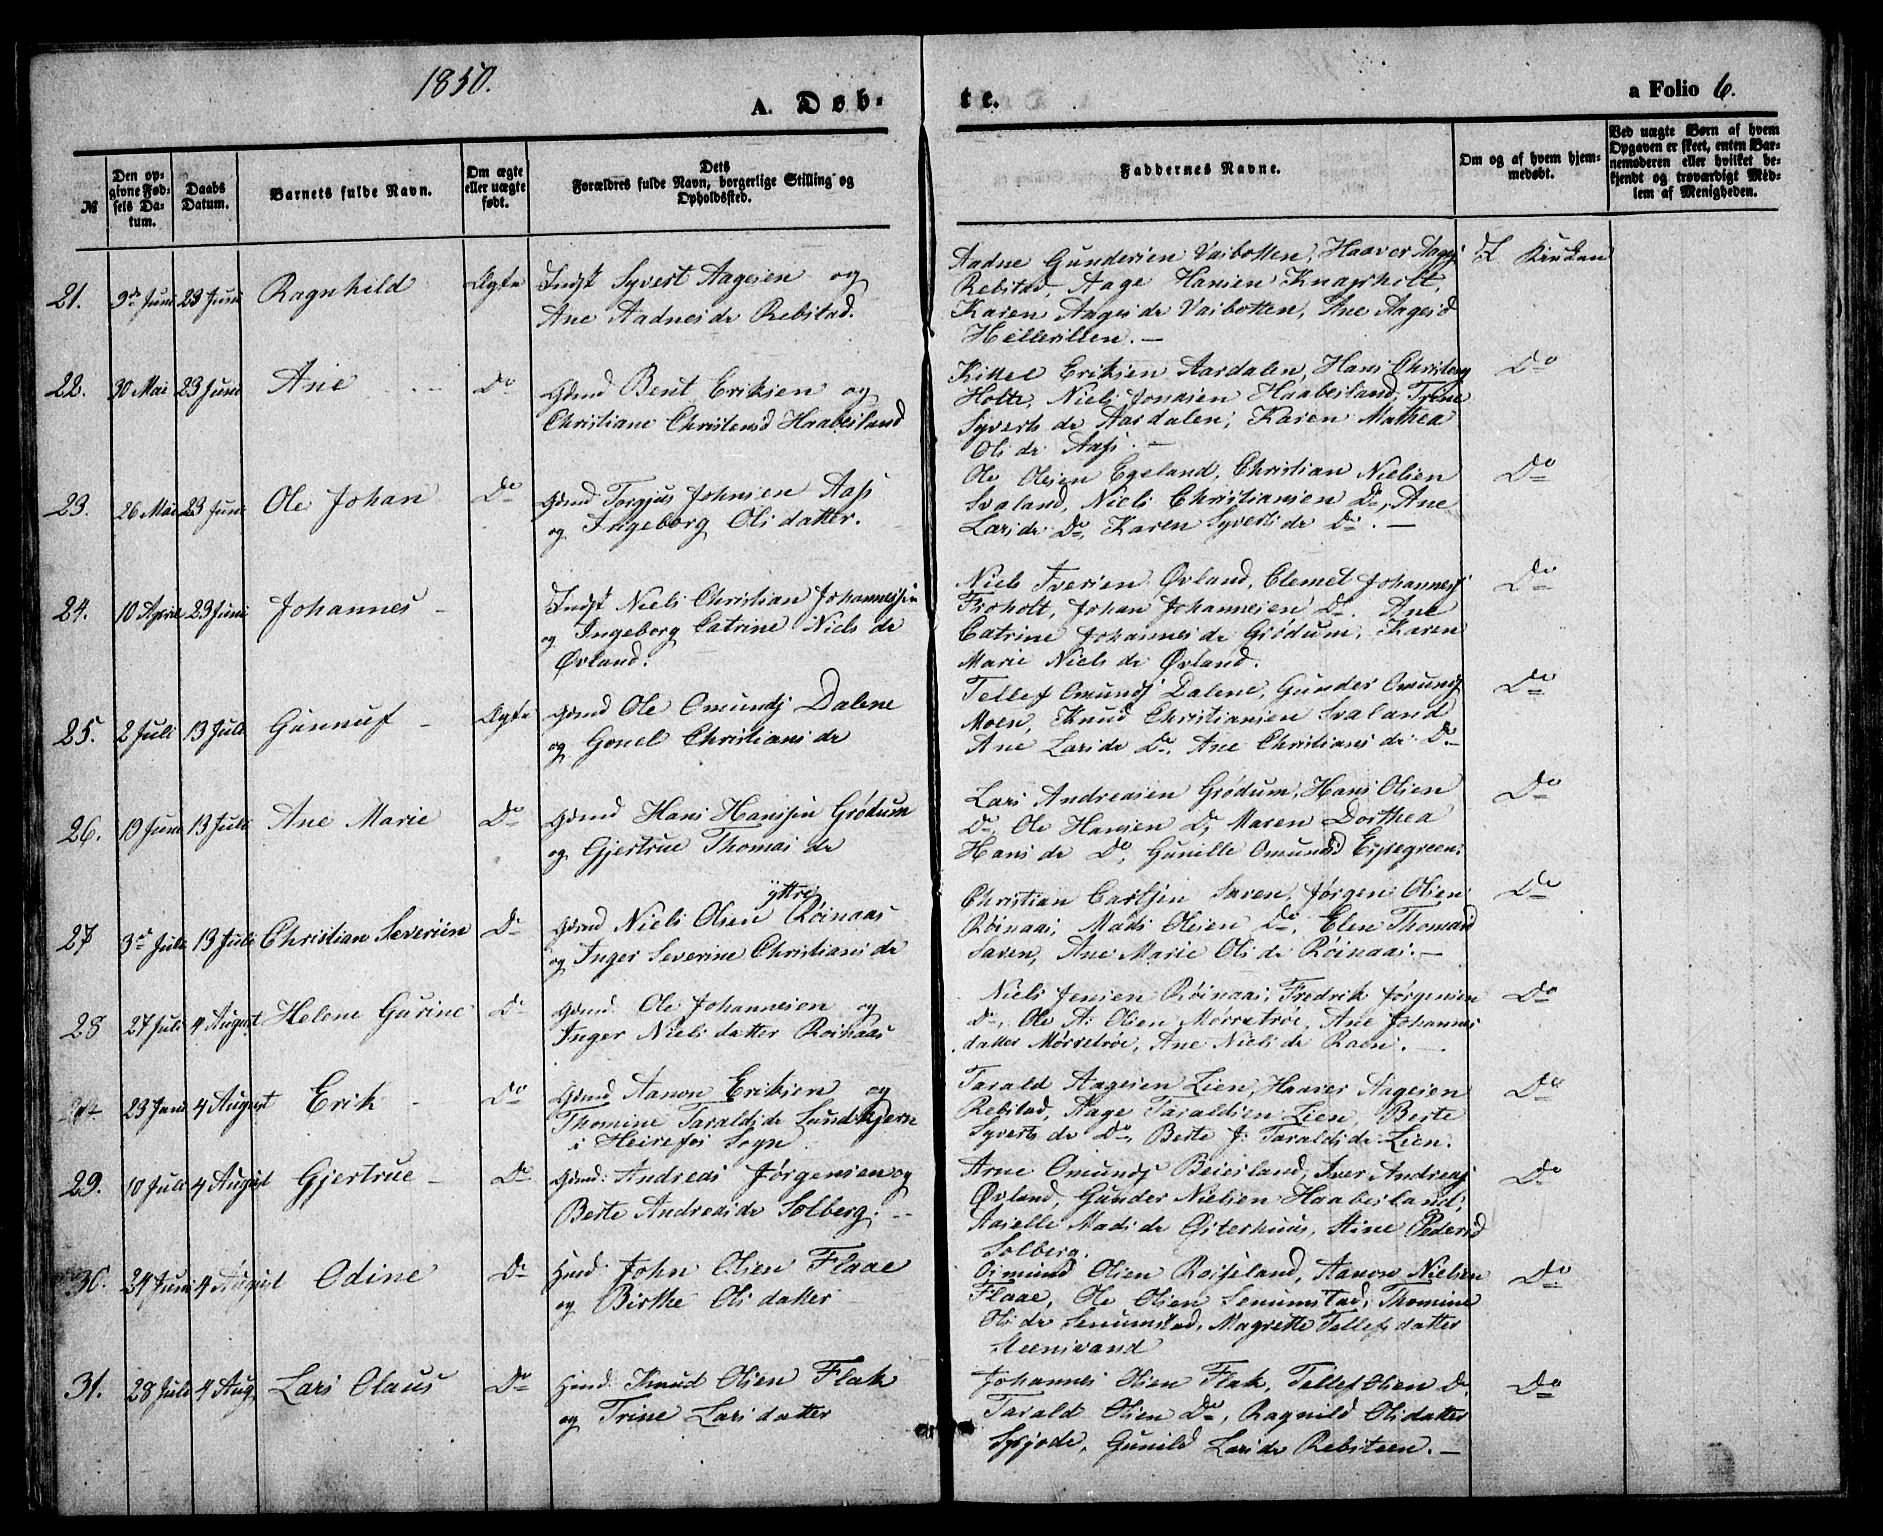 1850.
A. Døb-
te.
a Folio 6.
№
Den op-
givne Fød-
sels Da-
tum.
Daabs
Datum.
Barnets fulde Navn.
Om ægte
eller uægte
født.
Dets
Forældres fulde Navn, borgerlige Stilling og
Opholdssted.
Faddernes Navne.
Om og af hvem hjem-
medøbt.
Ved uægte Børn af hvem
Opgaven er skeet, enten Bar-
nemoderen eller hvilket be-
kjendt og troværdigt Med-
lem af Menigheden.
21. 9de Juni 23 Juni Ragnhild Ægte
Indst Syvert Aagesen og
Ane Aadnesdr Rebstad.
Aadne Gundersen Vaibotten, Haaver Aagesj
Rebstad, Aage Hansen Knapholt,
Karen Aagesdr Vaibotten, Ane Aagesd
Hellersllen. —
Kirken
22. 30 Mai 23 Juni Ane Do
Gdmd Bent Eriksen og
Christiane Christensd Haabesland
Kittel Eriksen Aardalen, Hans Christens
Holte, Niels Jonasen Haabesland, Trine
Syverts dr Aardalen, Karen Mathea
Ols dr Aass. —
Do
23. 26 Mai 23 Juni Ole Johan Do
Gdmd Torgjus Johnsen Aass
og Ingeborg Olsdatter.
Ole Olsen Egeland, Christian Nielsen
Svaland, Niels Christiansen Do, Ane
Lars dr Do, Karen Syverts dr Do. —
Do
24. 10 April 23 Juni Johannes -
Indst Niels Christian Johannessen
og Ingeborg Catrine Niels dr
Øvland.
Niels Iversen Øvland, Clemet Johannesj
Froholt, Johan Johannesen Do. Ane
Catrine Johannes dr Grødum, Karen
Marie Niels dr Øvland.
Do
25. 2 Juli 13 Juli Gunnuf - Ægte
Gdmd Ole Omundsj Dalene
og Gonel Christians dr
Tellef Omundsj Dalene, Gunder Omundsj
Moen, Knud Christiansen Svaland
Ane Lars dr Do, Ane Christians dr Do
Do
26. 19 Juni 13 Juli Ane Marie Do
Gdmd Hans Hanssen Grødum
og Gjertrue Thomas dr
Lars Andreasen Grødum, Hans Olsen
Do, Ole Hansen Do, Maren Dorthea
Hans dr Do, Gunille Omunsd Espegreen.
Do
27 3de Juli 13 Juli Christian Severien Do
yttre
Gdmd Niels Olsen Røinaas
og Inger Severine Christians dr
Christian Carlsen Saven, Jørgen Olsen
Røinaas, Mads Olsen Do, Elen Thomasd
Saven, Ane Marie Ols dr Røinaas. —
Do
28 27 Juli 4 August Helene Gurine Do
Gdmd Ole Johannesen og
Inger Nielsdatter Røinaas
Niels Jensen Røinaas, Fredrik Jørgensen
Do, Ole A. Olsen Mørretrøe, Ane Johannes
datter Mørretrøe, Ane Niels dr Roen. —
Do
23 Juni 4 August Erik - Do
Gdmd Aanon Eriksen og
Thomine Taralds dr Landskjern
i Heirefos Sogn
Tarald Aagesen Lien, Haaver Aagesen
Rebstad, Aage Taraldsen Lien, Berte
Syverts dr Do, Berte J. Taralds dr Lien.
Do
29. 10 Juli 4 August Gjertrue - Do
Gdmd: Andreas Jørgensen og
Berte Andreas dr Solberg. -
Arne Omundsj Beiesland, Iver Andreasj
Øvland, Gunder Nielsen Haabesland,
Asielle Mads dr Østerhuus, Stine Pedersd
Solberg.
Do
30. 24 Juni 4 August Odine Do
Hmd: John Olsen Flaae
og Birthe Olsdatter
Osmund Olsen Roiseland, Aanon Nielsen
Flaae, Ole Olsen Senumstad, Thomine
Ols dr Senumstad, Magrette Tellefsdatter
Steensvand
Do
31. 28 Juli 4 Aug. Lars Olaus Do
Hmd: Knud Olsen Flak
og Trine Larsdatter
Johannes Olsen Flak, Tellef Olsen Do
Tarald Olsen Do, Ragnild Olsdatter
Syjode, Gunild Lars dr Rebsteen. —
Do